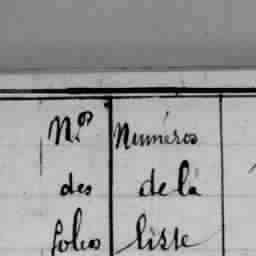 N.os
des
folios
Numéros
de la
liste